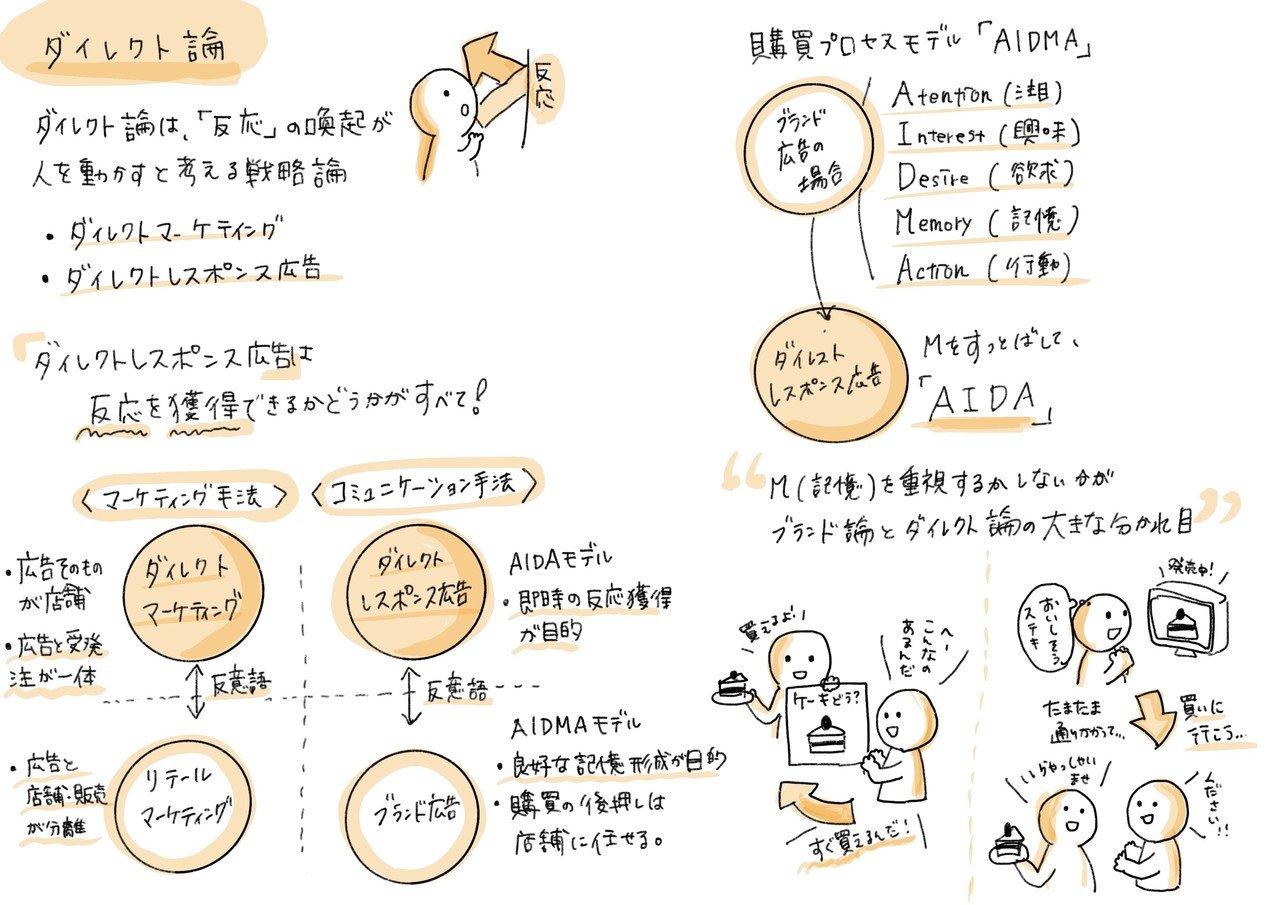 ダイレクト論
反応
ダイレクト論は、「反応」の喚起が
人を動かすと考える戦略論
・ダイレクトマーケティング
・ダイレクトレスポンス広告
「ダイレクトレスポンス広告は
反応を獲得できるかどうかがすべて!
〈マーケティング手法〉
〈コミュニケーション手法〉
・広告そのもの
が店舗
・広告と受発
注が一体
ダイレクト
マーケティング
ダイレクト
レスポンス広告
AIDAモデル
・即時の反応獲得
が目的
反意語
反意語
・広告と
店舗・販売
が分離
リテール
マーケティング
ブランド広告
AIDMAモデル
・良好な記憶形成が目的
・購買の後押しは
店舗に任せる。
購買プロセスモデル「AIDMA」
ブランド
広告の
場合
Atention(注目)
Interest(興味)
Desire(欲求)
Memory(記憶)
Action(行動)
ダイレスト
レスポンス広告
Mをすっとばして、
「AIDA」
“M(記憶)を重視するかしないかが
ブランド論とダイレクト論の大きな分かれ目”
買えるよ!
ケーキどう?
へー
こんなの
あるんだ
すぐ買えるんだ!
発売中!
おいしそう。
ステキ
たまたま
通りかかって…
買いに
行こう…
いらっしゃい
ませ
ください!!